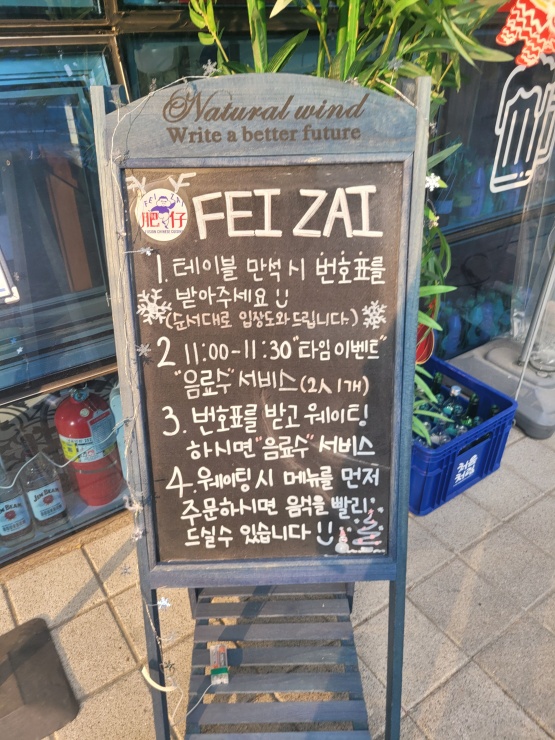 Natural wind
Write a better future
肥仔
FEI ZAI
1. 테이블 만석 시 번호표를
받아주세요
(순서대로 입장도와드립니다.)
2 11:00-11:30 "타임 이벤트"
"음료수" 서비스 (2人 1개)
3. 번호표를 받고 웨이팅
하시면 "음료수" 서비스
4. 웨이팅 시 메뉴를 먼저
주문하시면 음식을 빨리
드실수 있습니다
JIM BEAM
JIM BEAM
처음
처럼